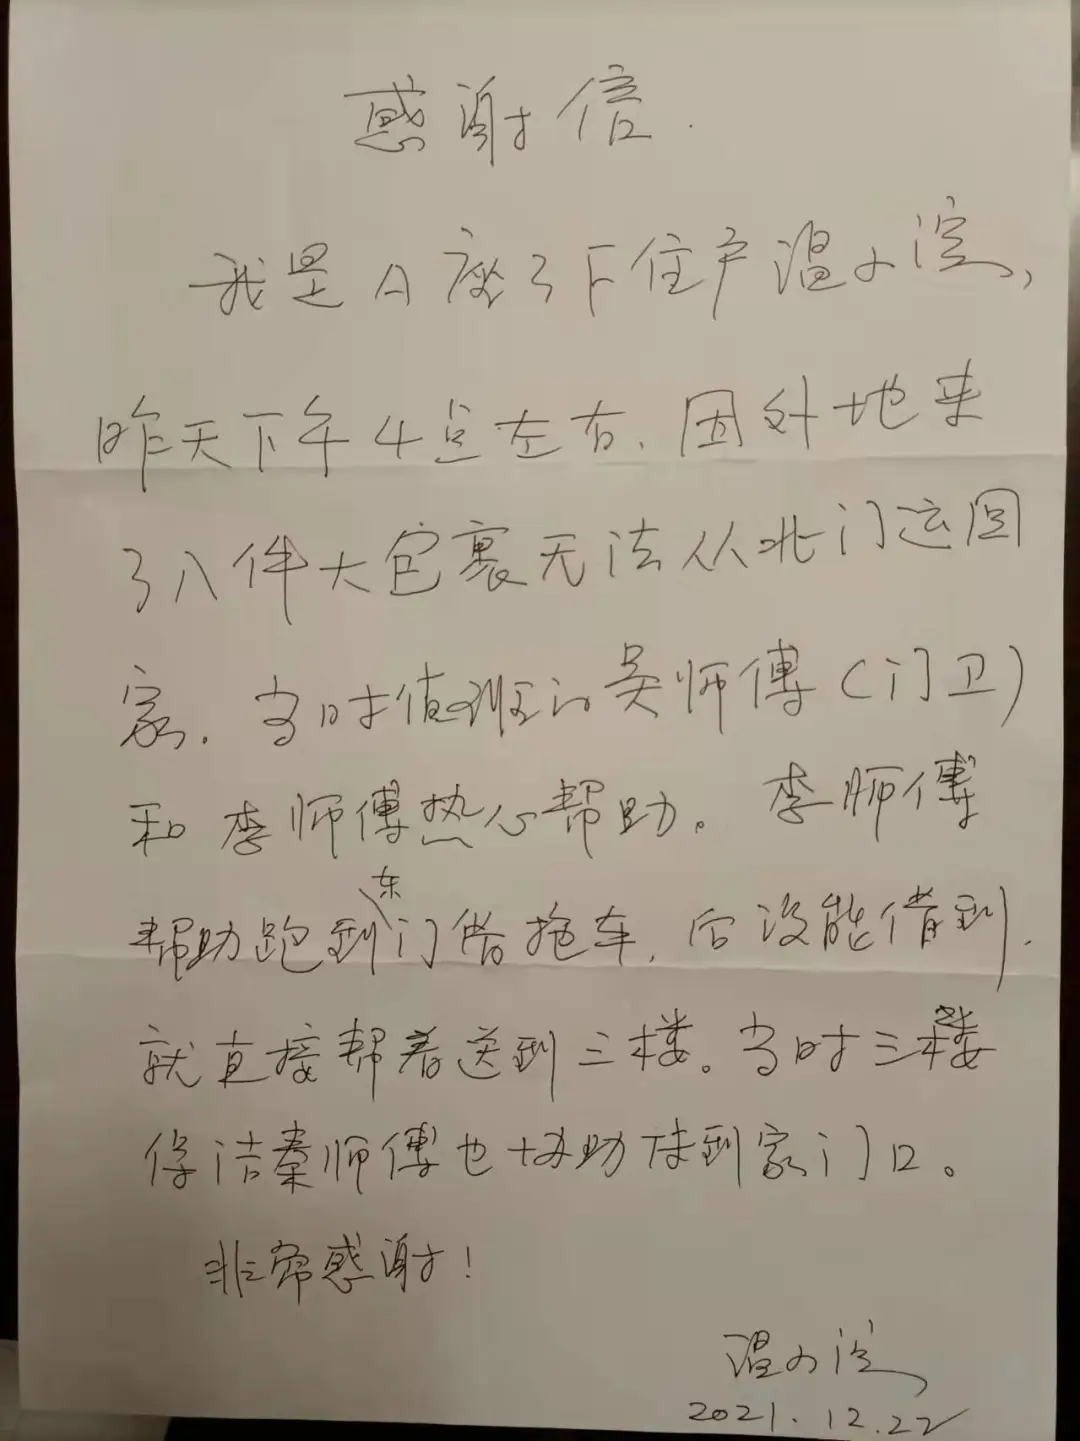 感谢信.
我是A座3F住户温小淀,
昨天下午4点左右,因外地来
了八件大包裹无法从北门运回
家.当时值班的吴师傅(门卫)
和李师傅热心帮助。李师傅
帮助跑到东门借拖车,后没能借到,
就直接帮着送到三楼。当时三楼
保洁秦师傅也协助送到家门口。
非常感谢!
温小淀
2021.12.22